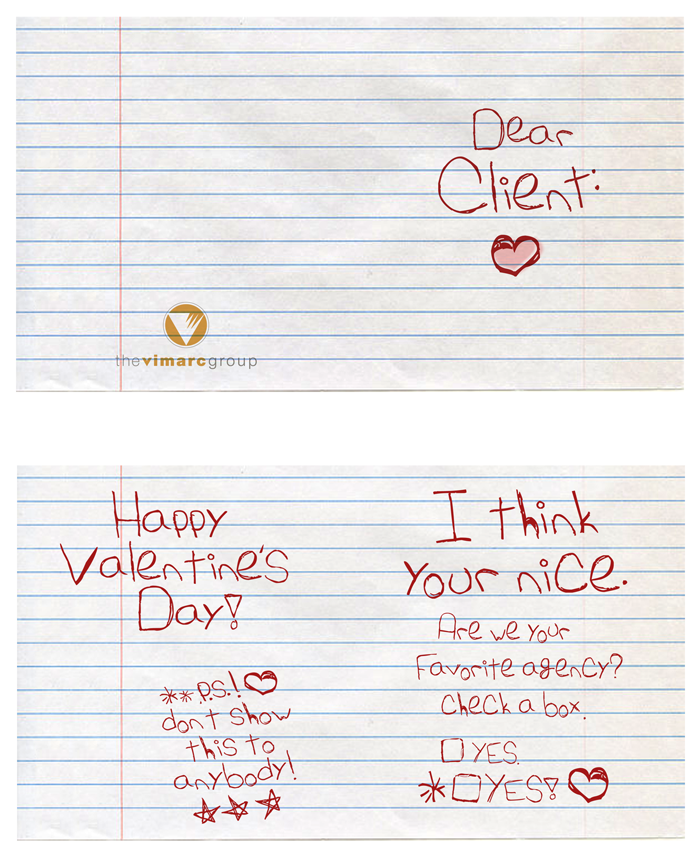 Dear
Client:
thevimarcgroup
Happy
Valentine's
Day!
**P.S.!
dont show
this to
anybody!
I think
your nice.
Are we your
Favorite agency?
Check a box.
YES.
*YES!